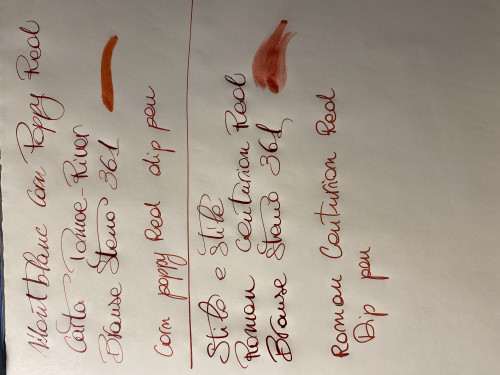 Montblanc Corn Poppy Red
Carta Tomoe-River
Brause Steno 361
Corn poppy Red dip pen
Stilo e Stile
Roman Centurion Red
Brause Steno 361
Roman Centurion Red
Dip pen